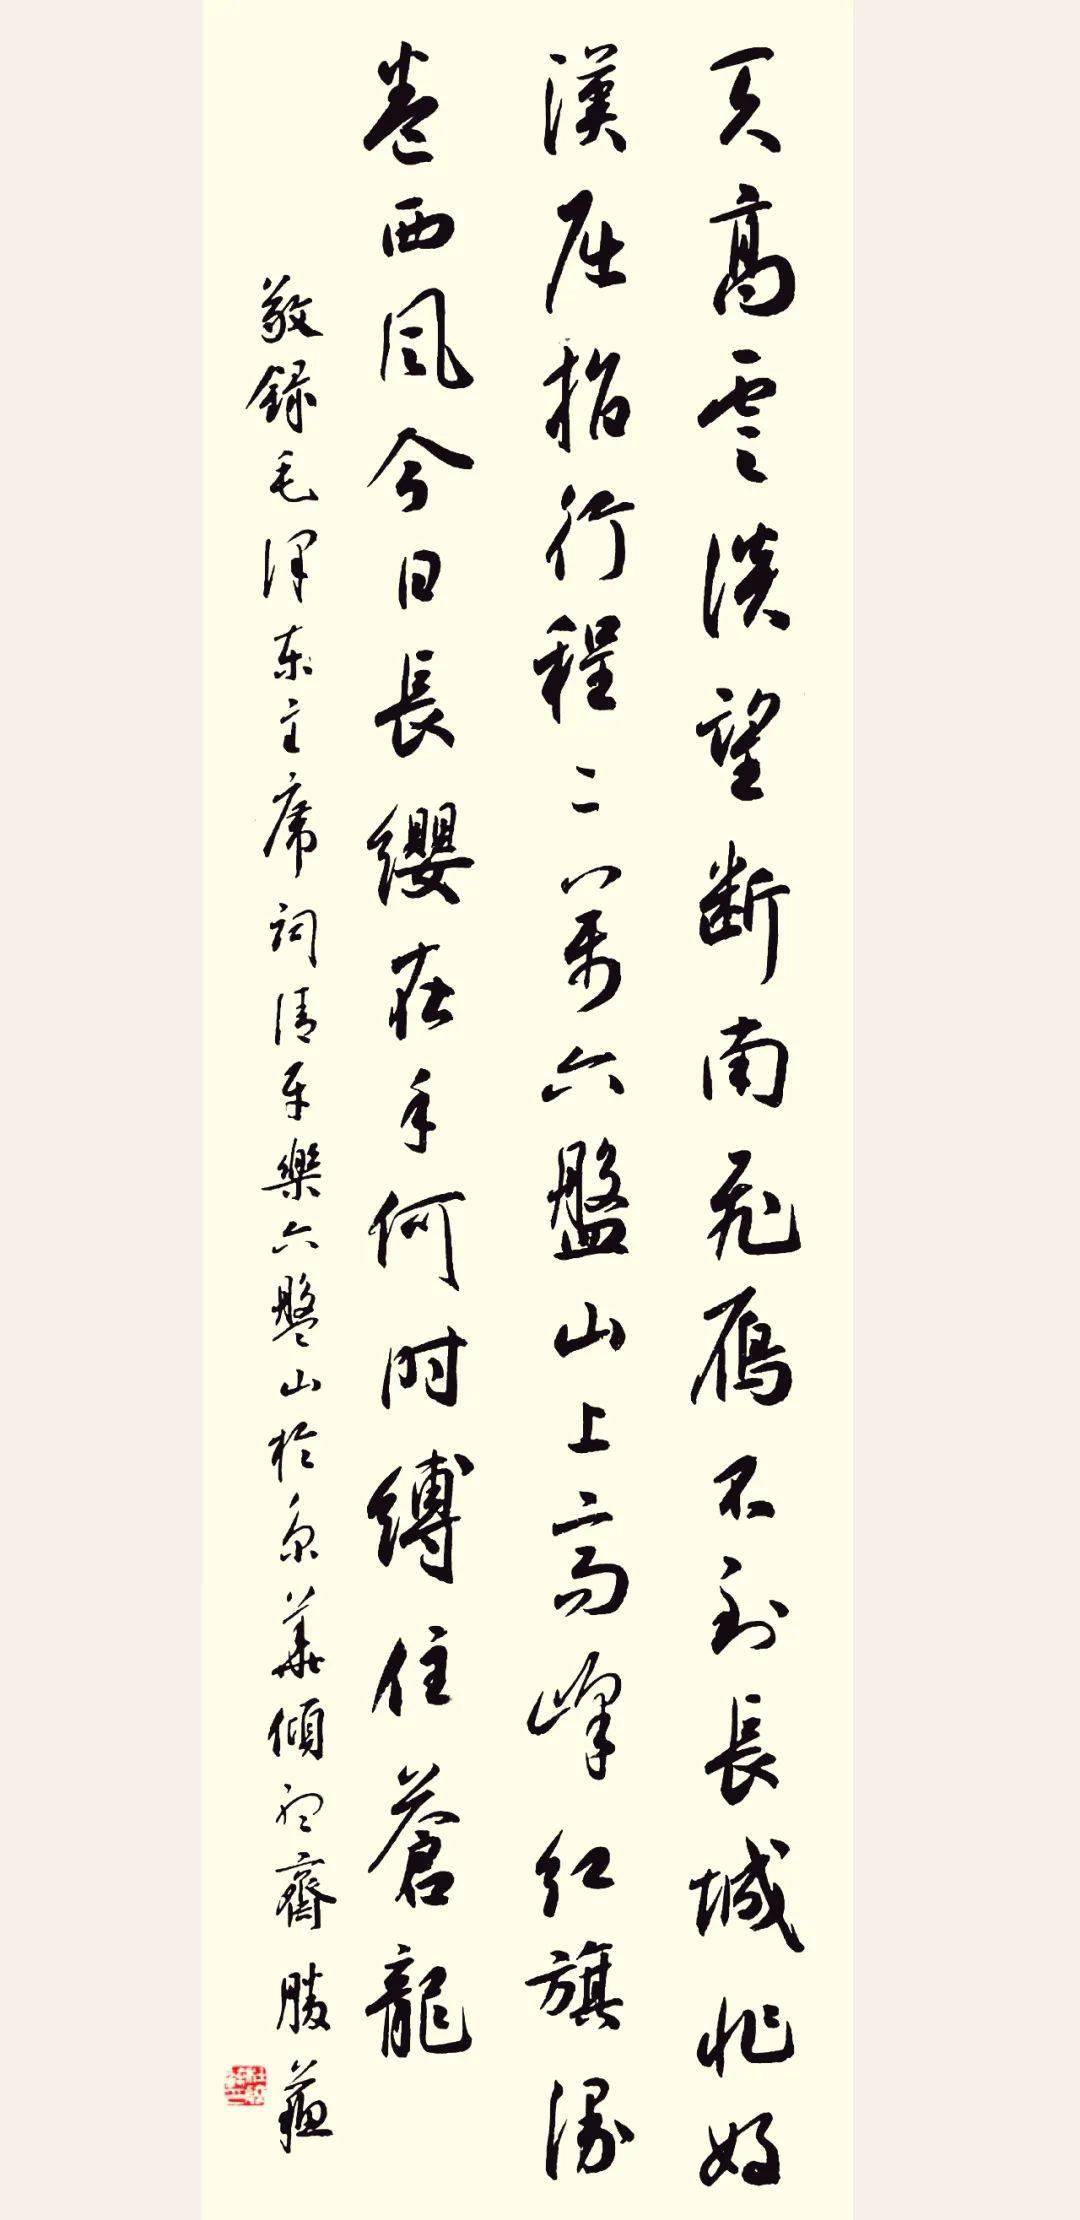 天高雲淡望斷南飛雁不到長城非好
漢屈指行程二萬六盤山上高峰紅旗漫
卷西風今日長纓在手何時縛住蒼龍
敬錄毛澤東主席詞清平樂六盤山於京華傾齋勝